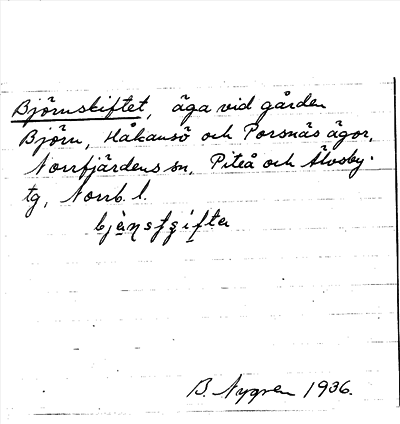 Björnskiftet, äga vid gården
Björn, Håkansö och Porsnäs ägor,
Norrfjärdens sn, Piteå och Älvsby.
tg, Norrb. l.
B. Nygren 1936.